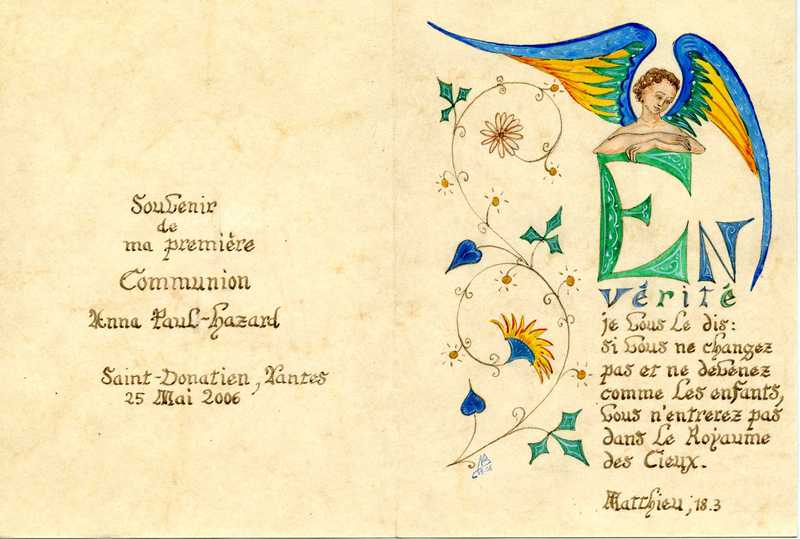 Souvenir
de
ma première
Communion
Anna Paul-Hazard
Saint-Donatien, Nantes
25 Mai 2006
En
vérité
je vous le dis:
si vous ne changez
pas et ne devenez
comme les enfants,
vous n'entrerez pas
dans le Royaume
des Cieux.
Matthieu, 18.3